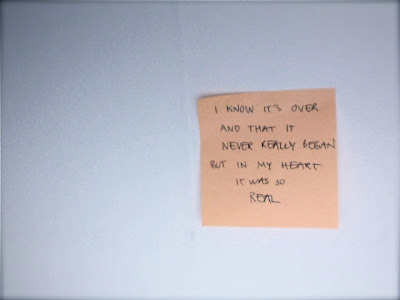 I KNOW IT'S OVER
AND THAT IT
NEVER REALLY BEGAN
BUT IN MY HEART
IT WAS SO
REAL